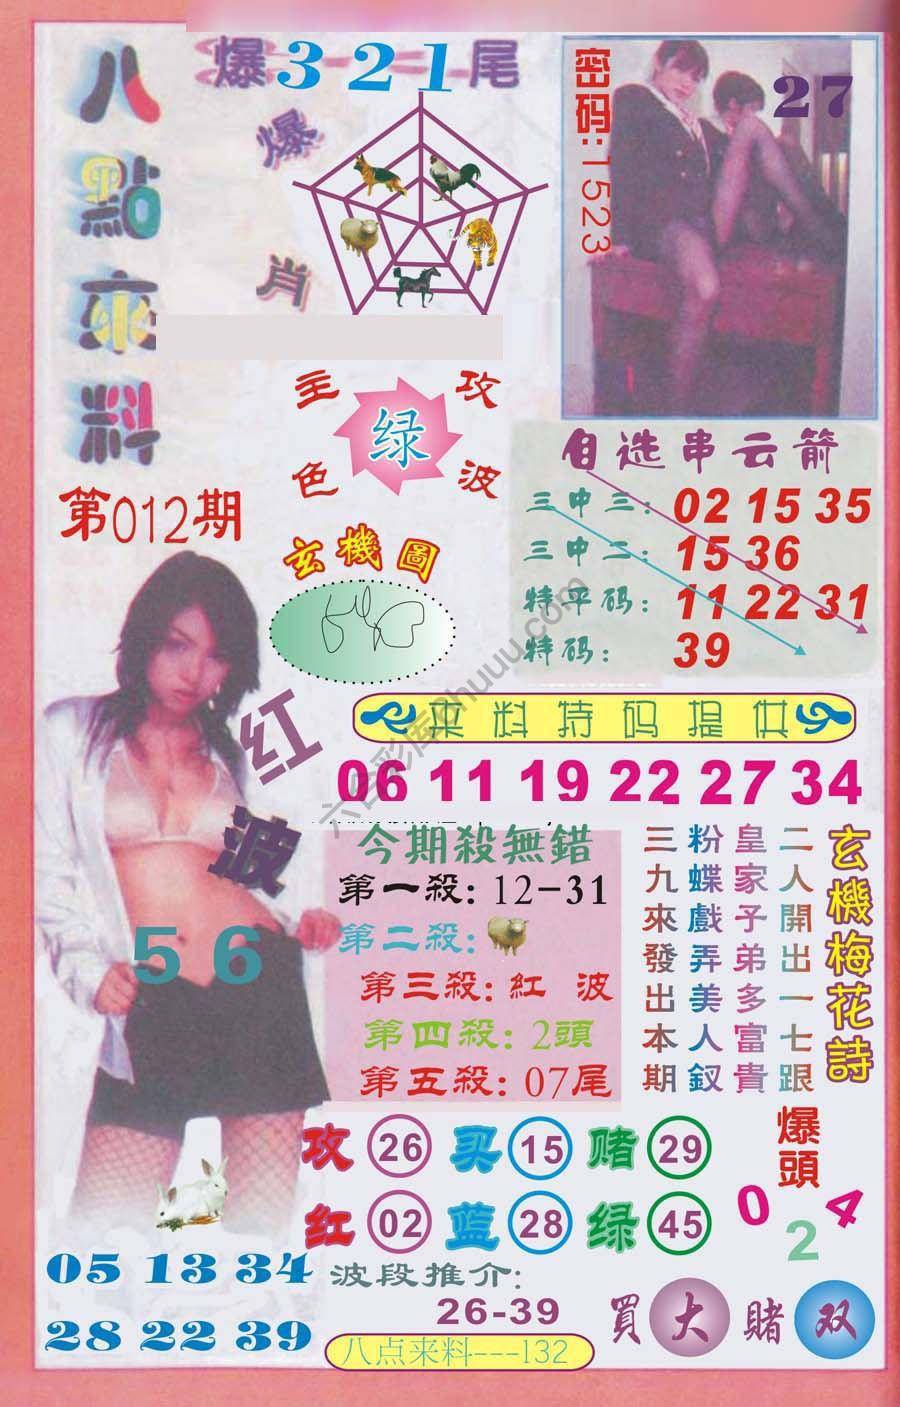 八點來料
爆321尾
爆肖
密码:1523
27
主攻
绿
色波
第012期
玄機圖
自选串云箭
三中三: 02 15 35
三中二: 15 36
特平码: 11 22 31
特码: 39
来料特码提供
06 11 19 22 27 34
红波
56
今期殺無錯
第一殺: 12-31
第二殺:
第三殺: 紅 波
第四殺: 2頭
第五殺: 07尾
玄機梅花詩
二人開出一七跟
皇家子弟多富貴
粉蝶戲弄美人釵
三九來發出本期
攻 26 买 15 赌 29
红 02 蓝 28 绿 45
爆頭
0 2 4
05 13 34
28 22 39
波段推介:
26-39
買大賭双
八点来料---132